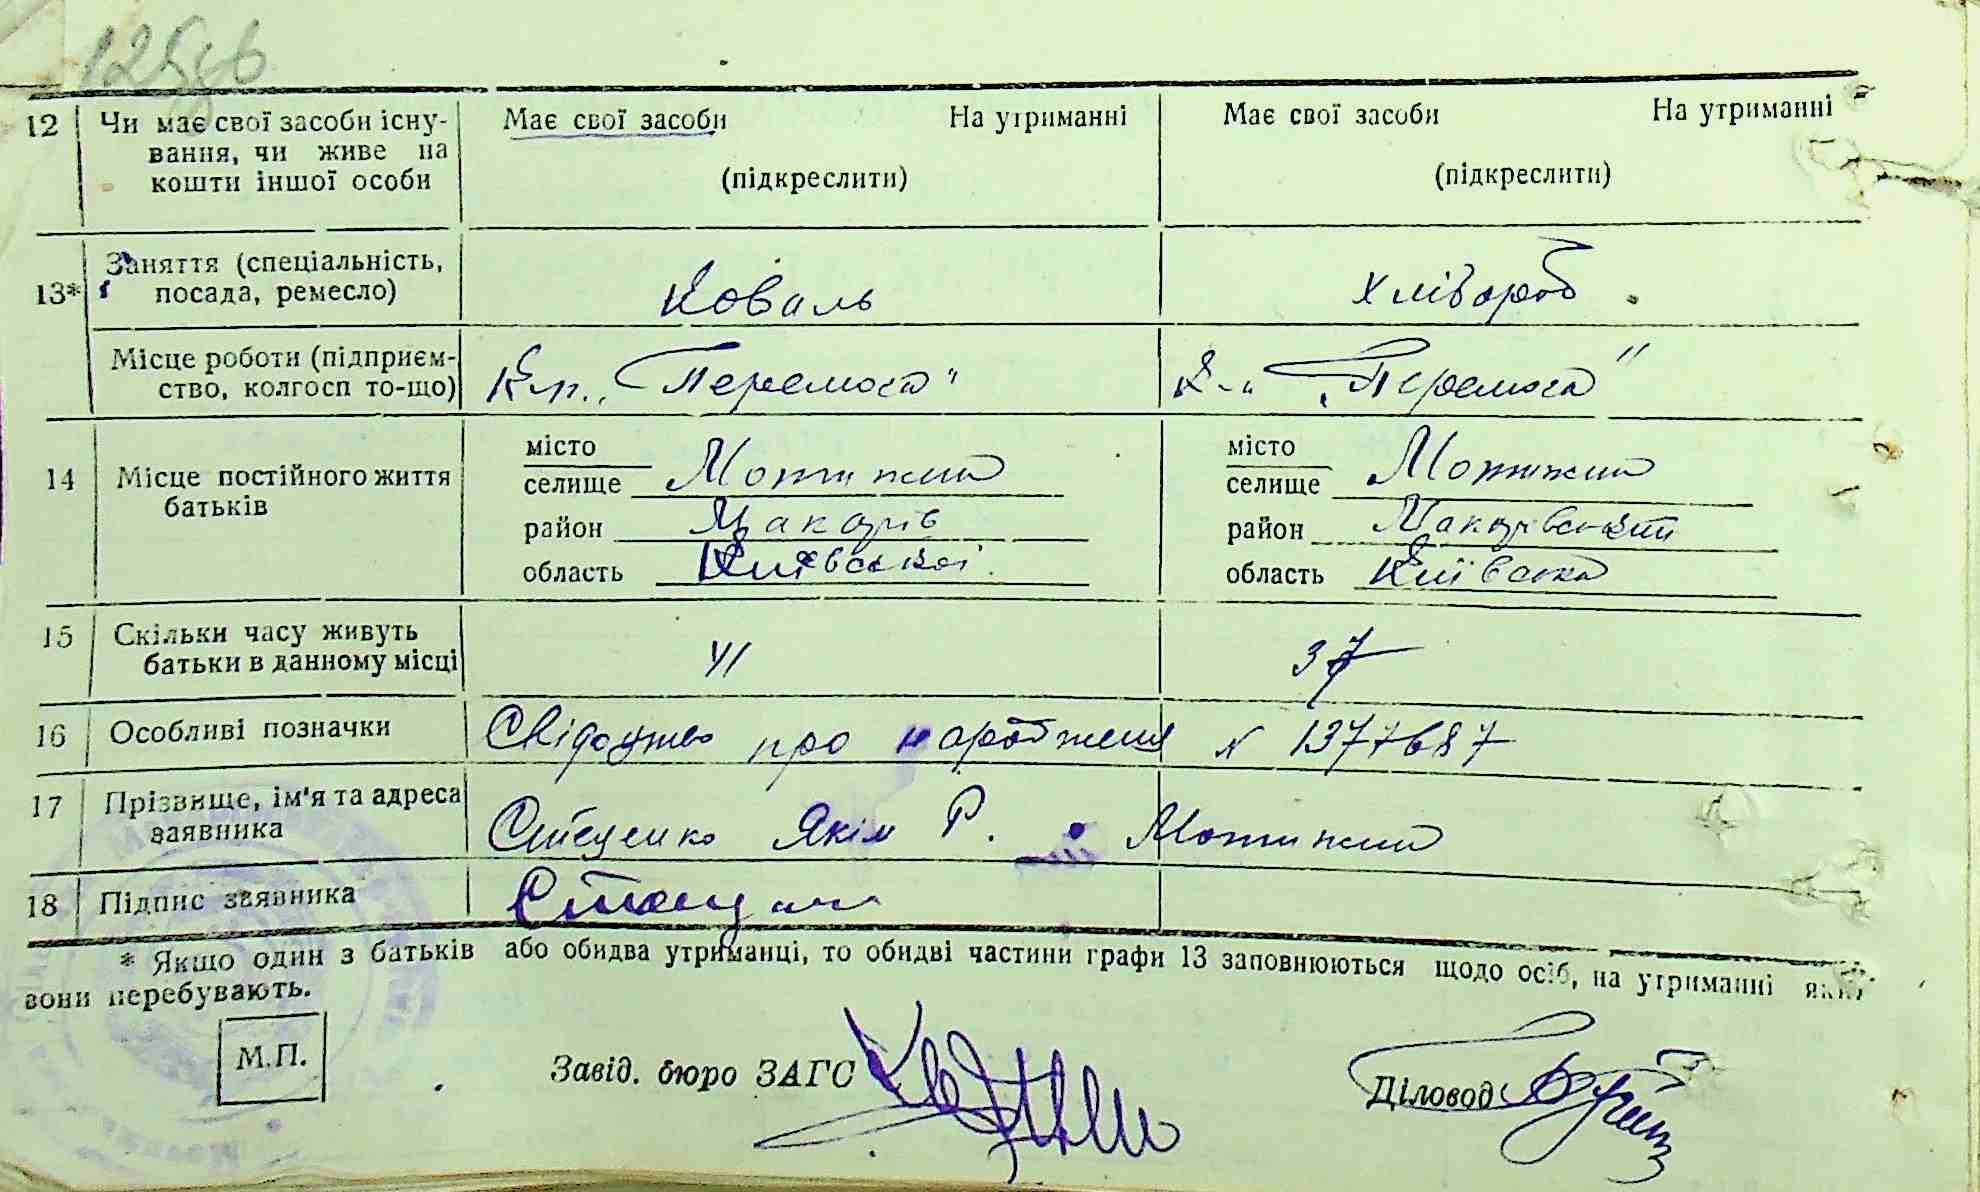 125зв
12 Чи має свої засоби існу- Має свої засоби На утриманні Має свої засоби На утриманні
вання, чи живе на
кошти іншої особи (підкреслити) (підкреслити)
13* Заняття (спеціальність,
посада, ремесло) Коваль Хлібороб
Місце роботи (підприєм-
ство, колгосп то-що) К-п. „Перемога" К-п „Перемога"
14 Місце постійного життя
батьків
місто місто
селище Мотижин селище Мотижин
район Макарів район Макарівський
область Київської область Київська
15 Скільки часу живуть
батьки в данному місці 41 37
16 Особливі позначки Свідоцтво про народження № 1377687
17 Прізвище, ім'я та адреса
заявника Стеценко Якім Р. Мотижин
18 Підпис заявника
* Якщо один з батьків або обидва утриманці, то обидві частини графи 13 заповнюються щодо осіб, на утриманні яких
вони перебувають.
М.П. Завід. бюро ЗАГС Діловод